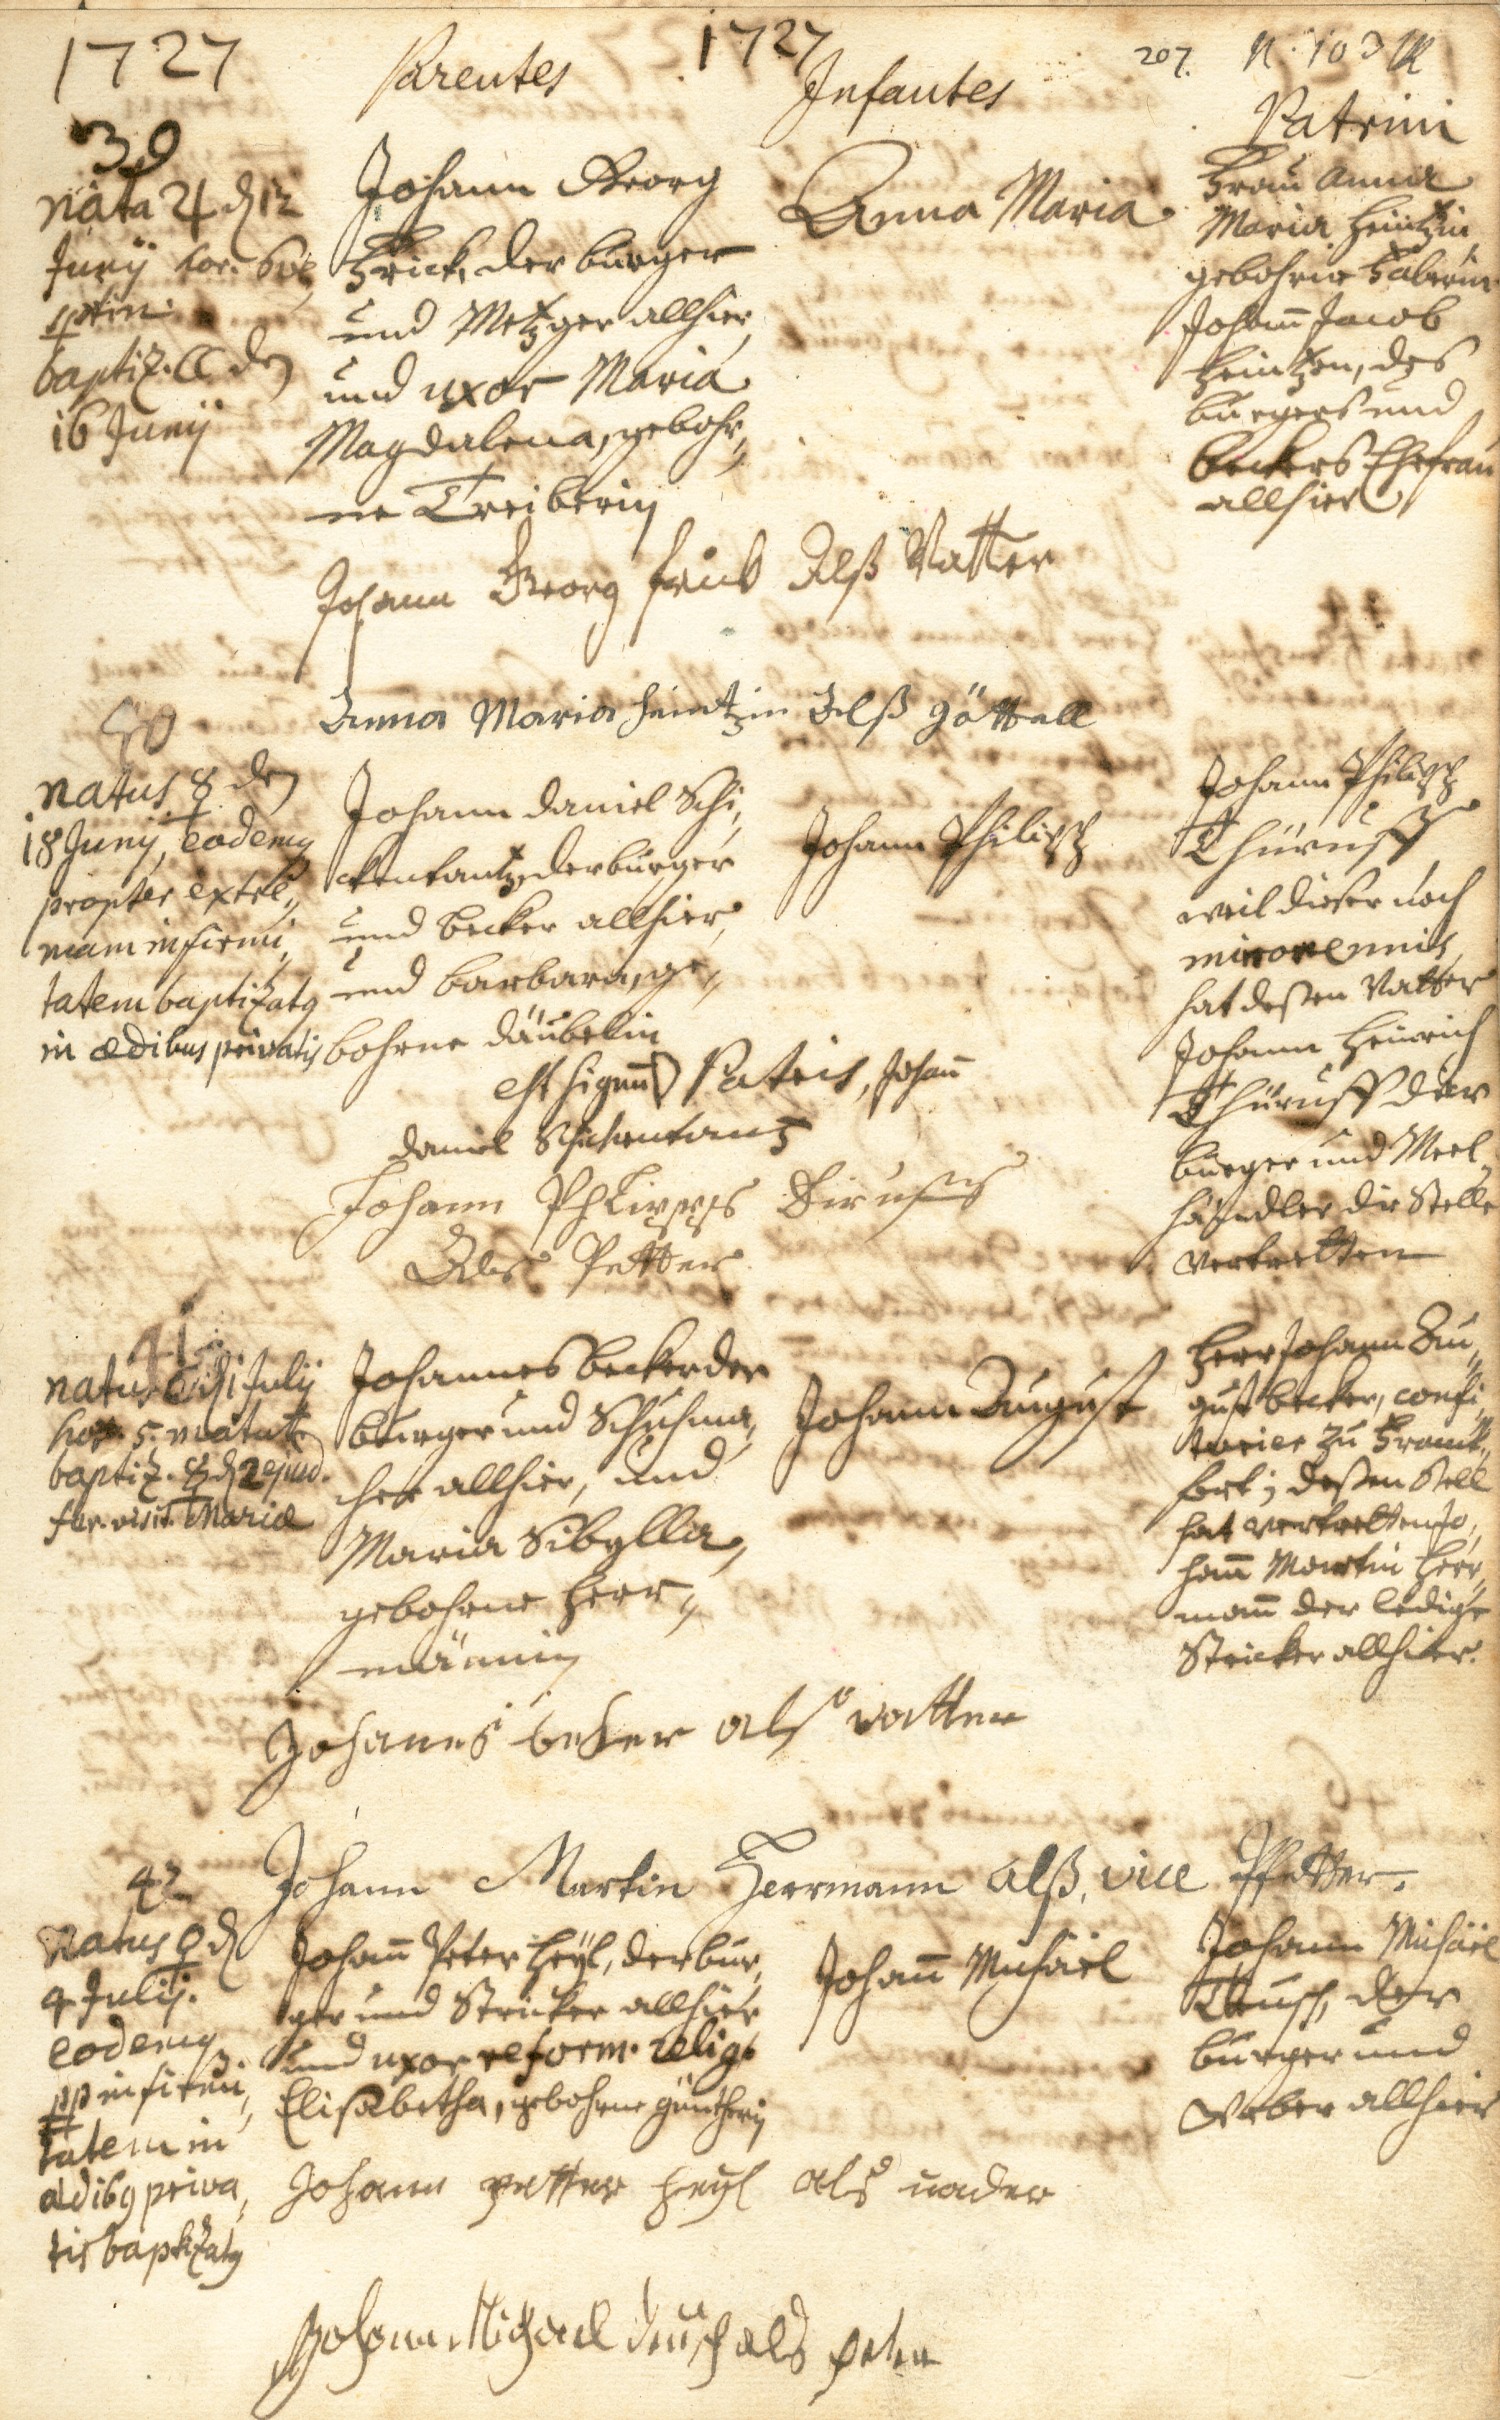 1727
Parentes
1727
Infantes
207.
Patrini
39
nata ♃ d. 12
Junij hor.
baptiz. ☾ den
16 Junij
Johann Georg
Frick, der burger
und Metzger allhier,
und uxor Maria
Magdalena, gebohr„
ne Treiberin
Anna Maria
Frau Anna
Maria Heintzin
gebohrne Faberin
Johann Jacob
Heintzen, des
burgers und
beckers Ehefrau
allhier
Johann Georg frick Alß Vatter
Anna Maria heintzin Alß göttell
40
natus ☿ den
18 Junij, eodem
propter extre„
mam infirmi„
tatem baptizatus
in ædibus privatis
Johann Daniel Schi„
ckentantz, der burger
und becker allhier,
und barbara, ge„
bohrne däubelin
Johann Philipp
Johann Philipp
Thüruff
weil dieser noch
minorennis,
hat deßen Vatter
Johann Heinrich
Thüruff der
burger und Meel„
händler die Stelle
vertretten
est signum Patris, Johann
Daniel Schickentantz
Johann Philipps Diruff
Als Petter
41
natus ☾ d. 1 Julij
hor. 5. matut.
baptiz. ☿ d. 2 ejusd.
fer. visit. Mariæ
Johannes becker der
burger und Schuhma„
cher allhier, und
Maria Sibylla,
gebohrne Herr„
männin
Johann August
Herr Johann Au„
gust becker, confi„
turier zu Franck„
fort; deßen Stell
hat vertretten Jo„
hann Martin Herr„
mann der ledige
Stricker allhier.
Johanes becker als vatter
Johann Martin Herrmann alß, vice Pfetter.
42
Natus ♀ d.
4 Julij.
eodem
pp infirmi„
tatem in
ædibus priva„
tis baptizatus
Johann Peter Heyl, der bur„
ger und Stricker allhier
und uxor reform. relig.
Elisabetha, gebohrne güntherin
Johann Michäel
Johann Michäel
Teusch, der
burger und
Weber allhier
Johann petter heyl als vader
Johann Michael deusch als peter